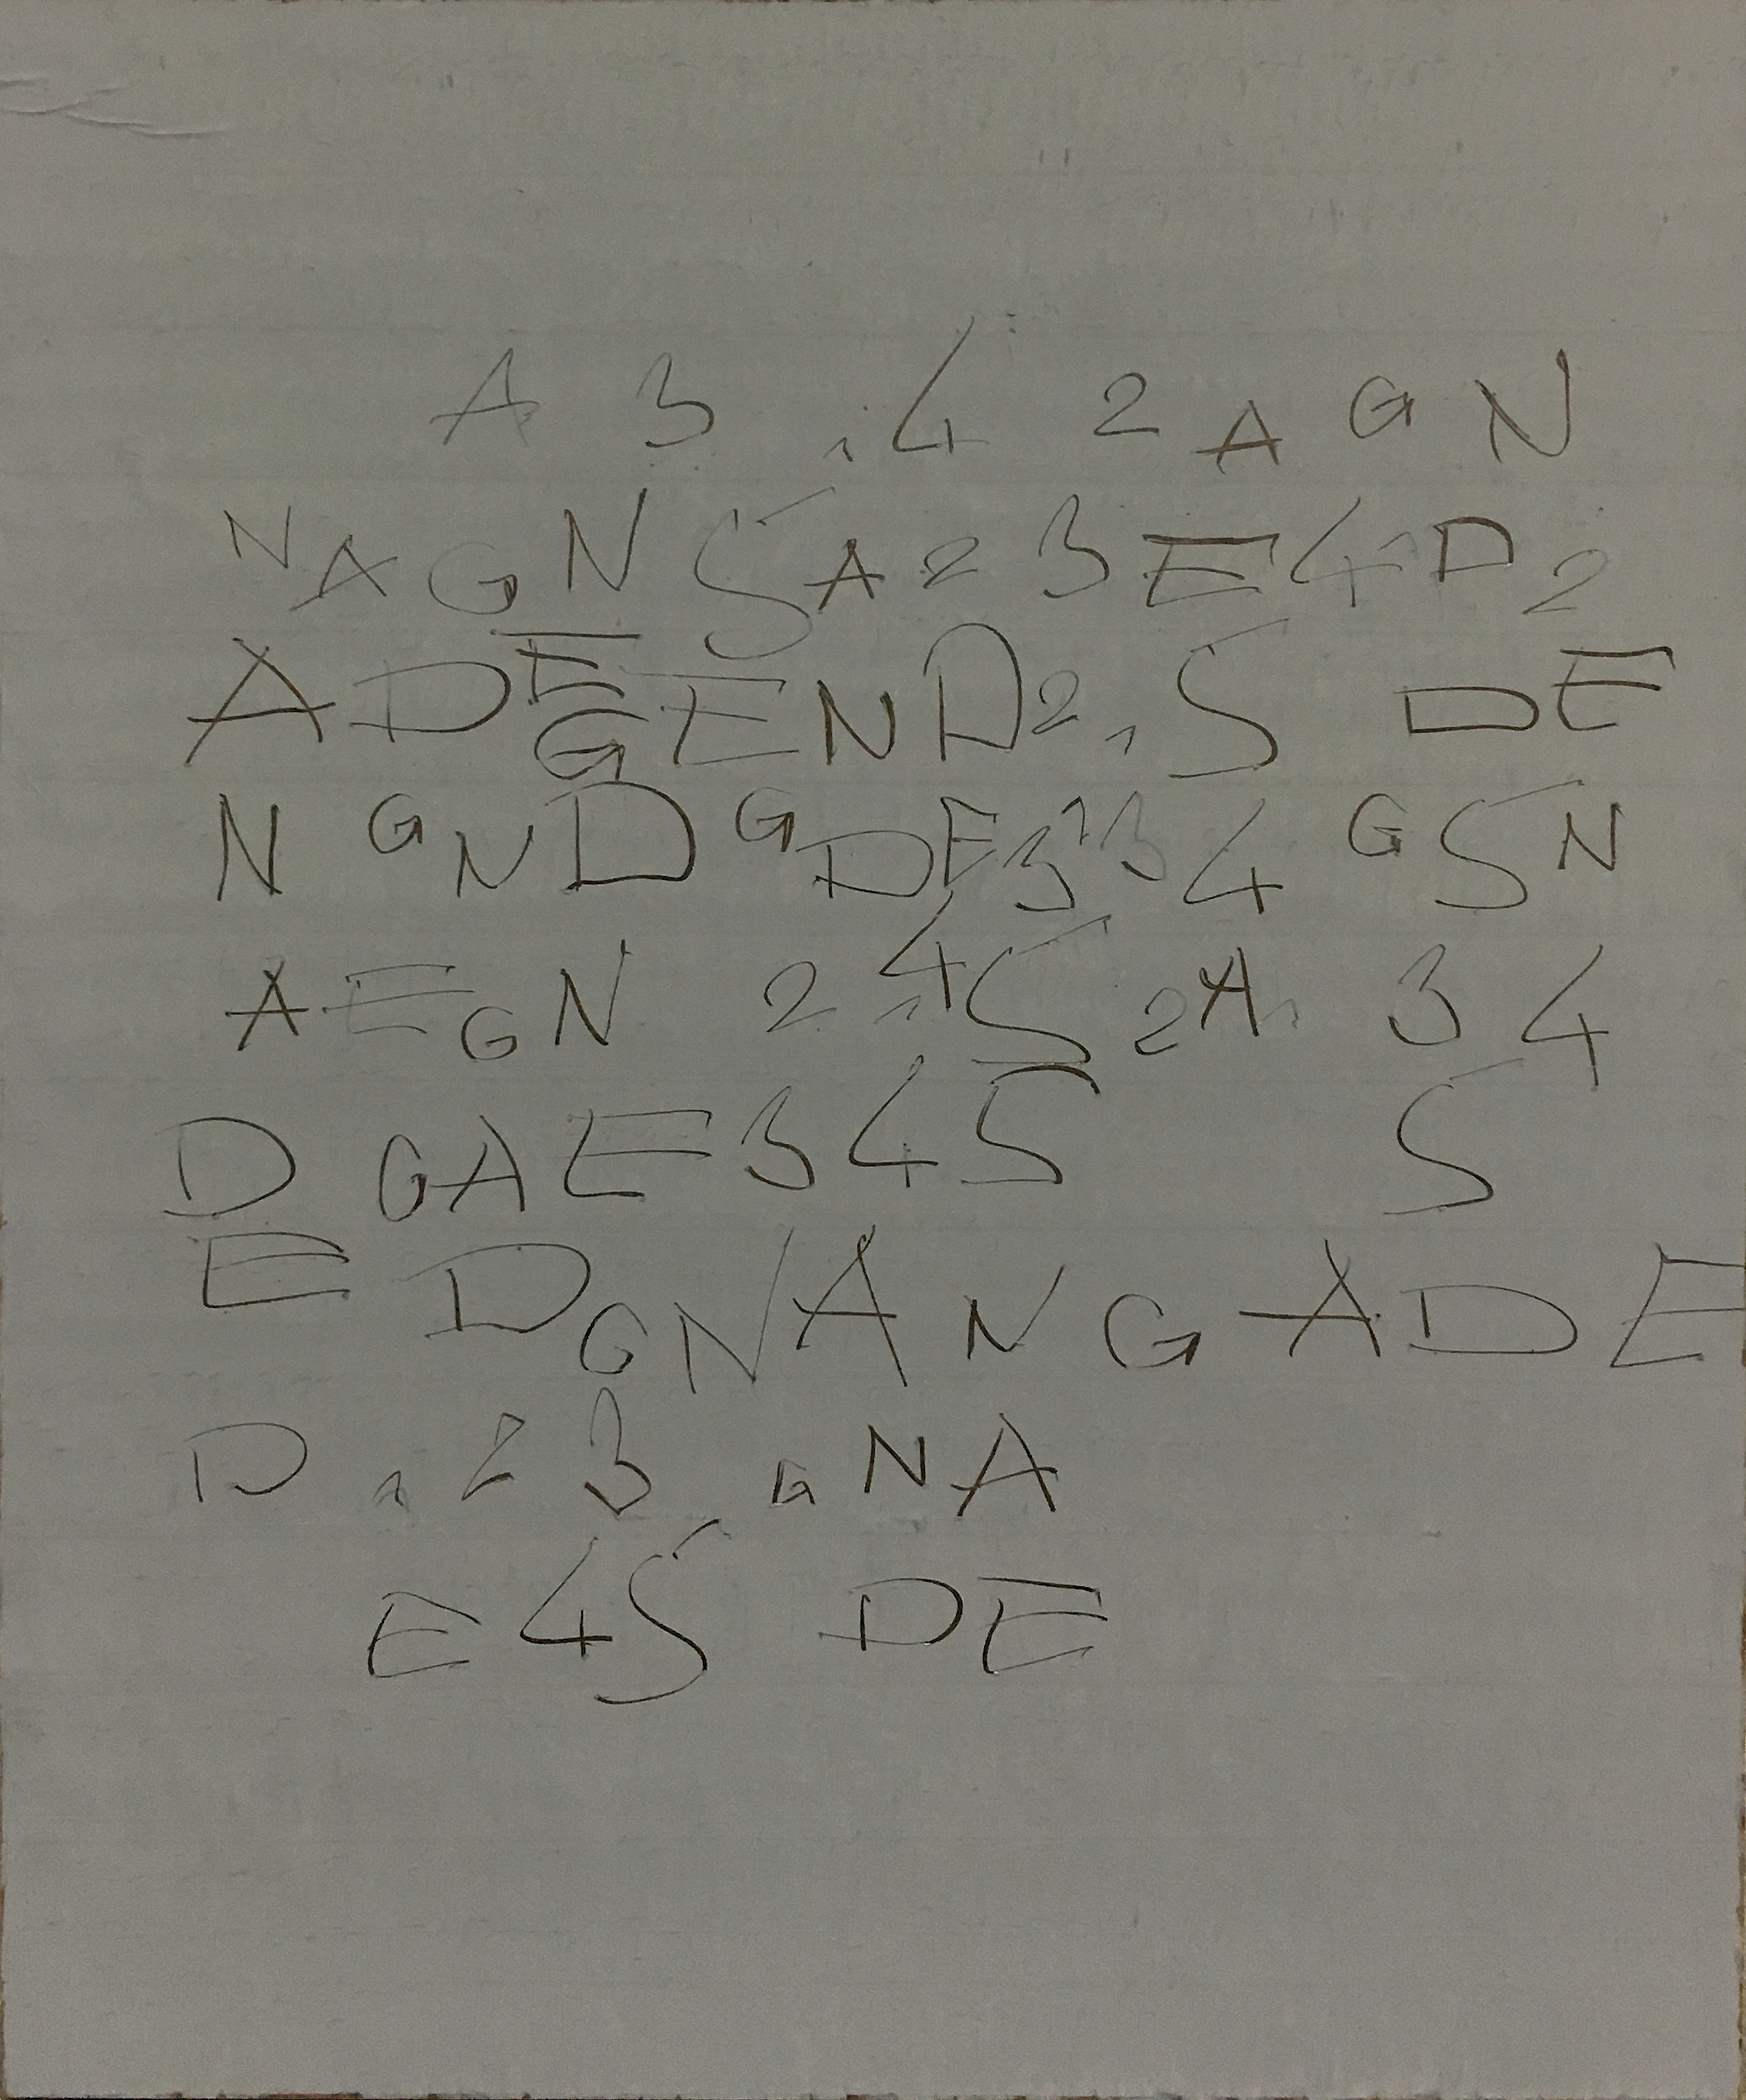 A 3 1 4 2 A G N
N A G N 5 A 2 3 E 4 1 D 2
A D E G E N D 2 1 5 D E
N G N D G D E 3 1 3 4 G 5 N
A E G N 2 1 4 5 2 A 1 3 4
D G A E 3 4 5 5
E D G N A N G A D E
D 1 2 3 G N A
E 4 5 D E